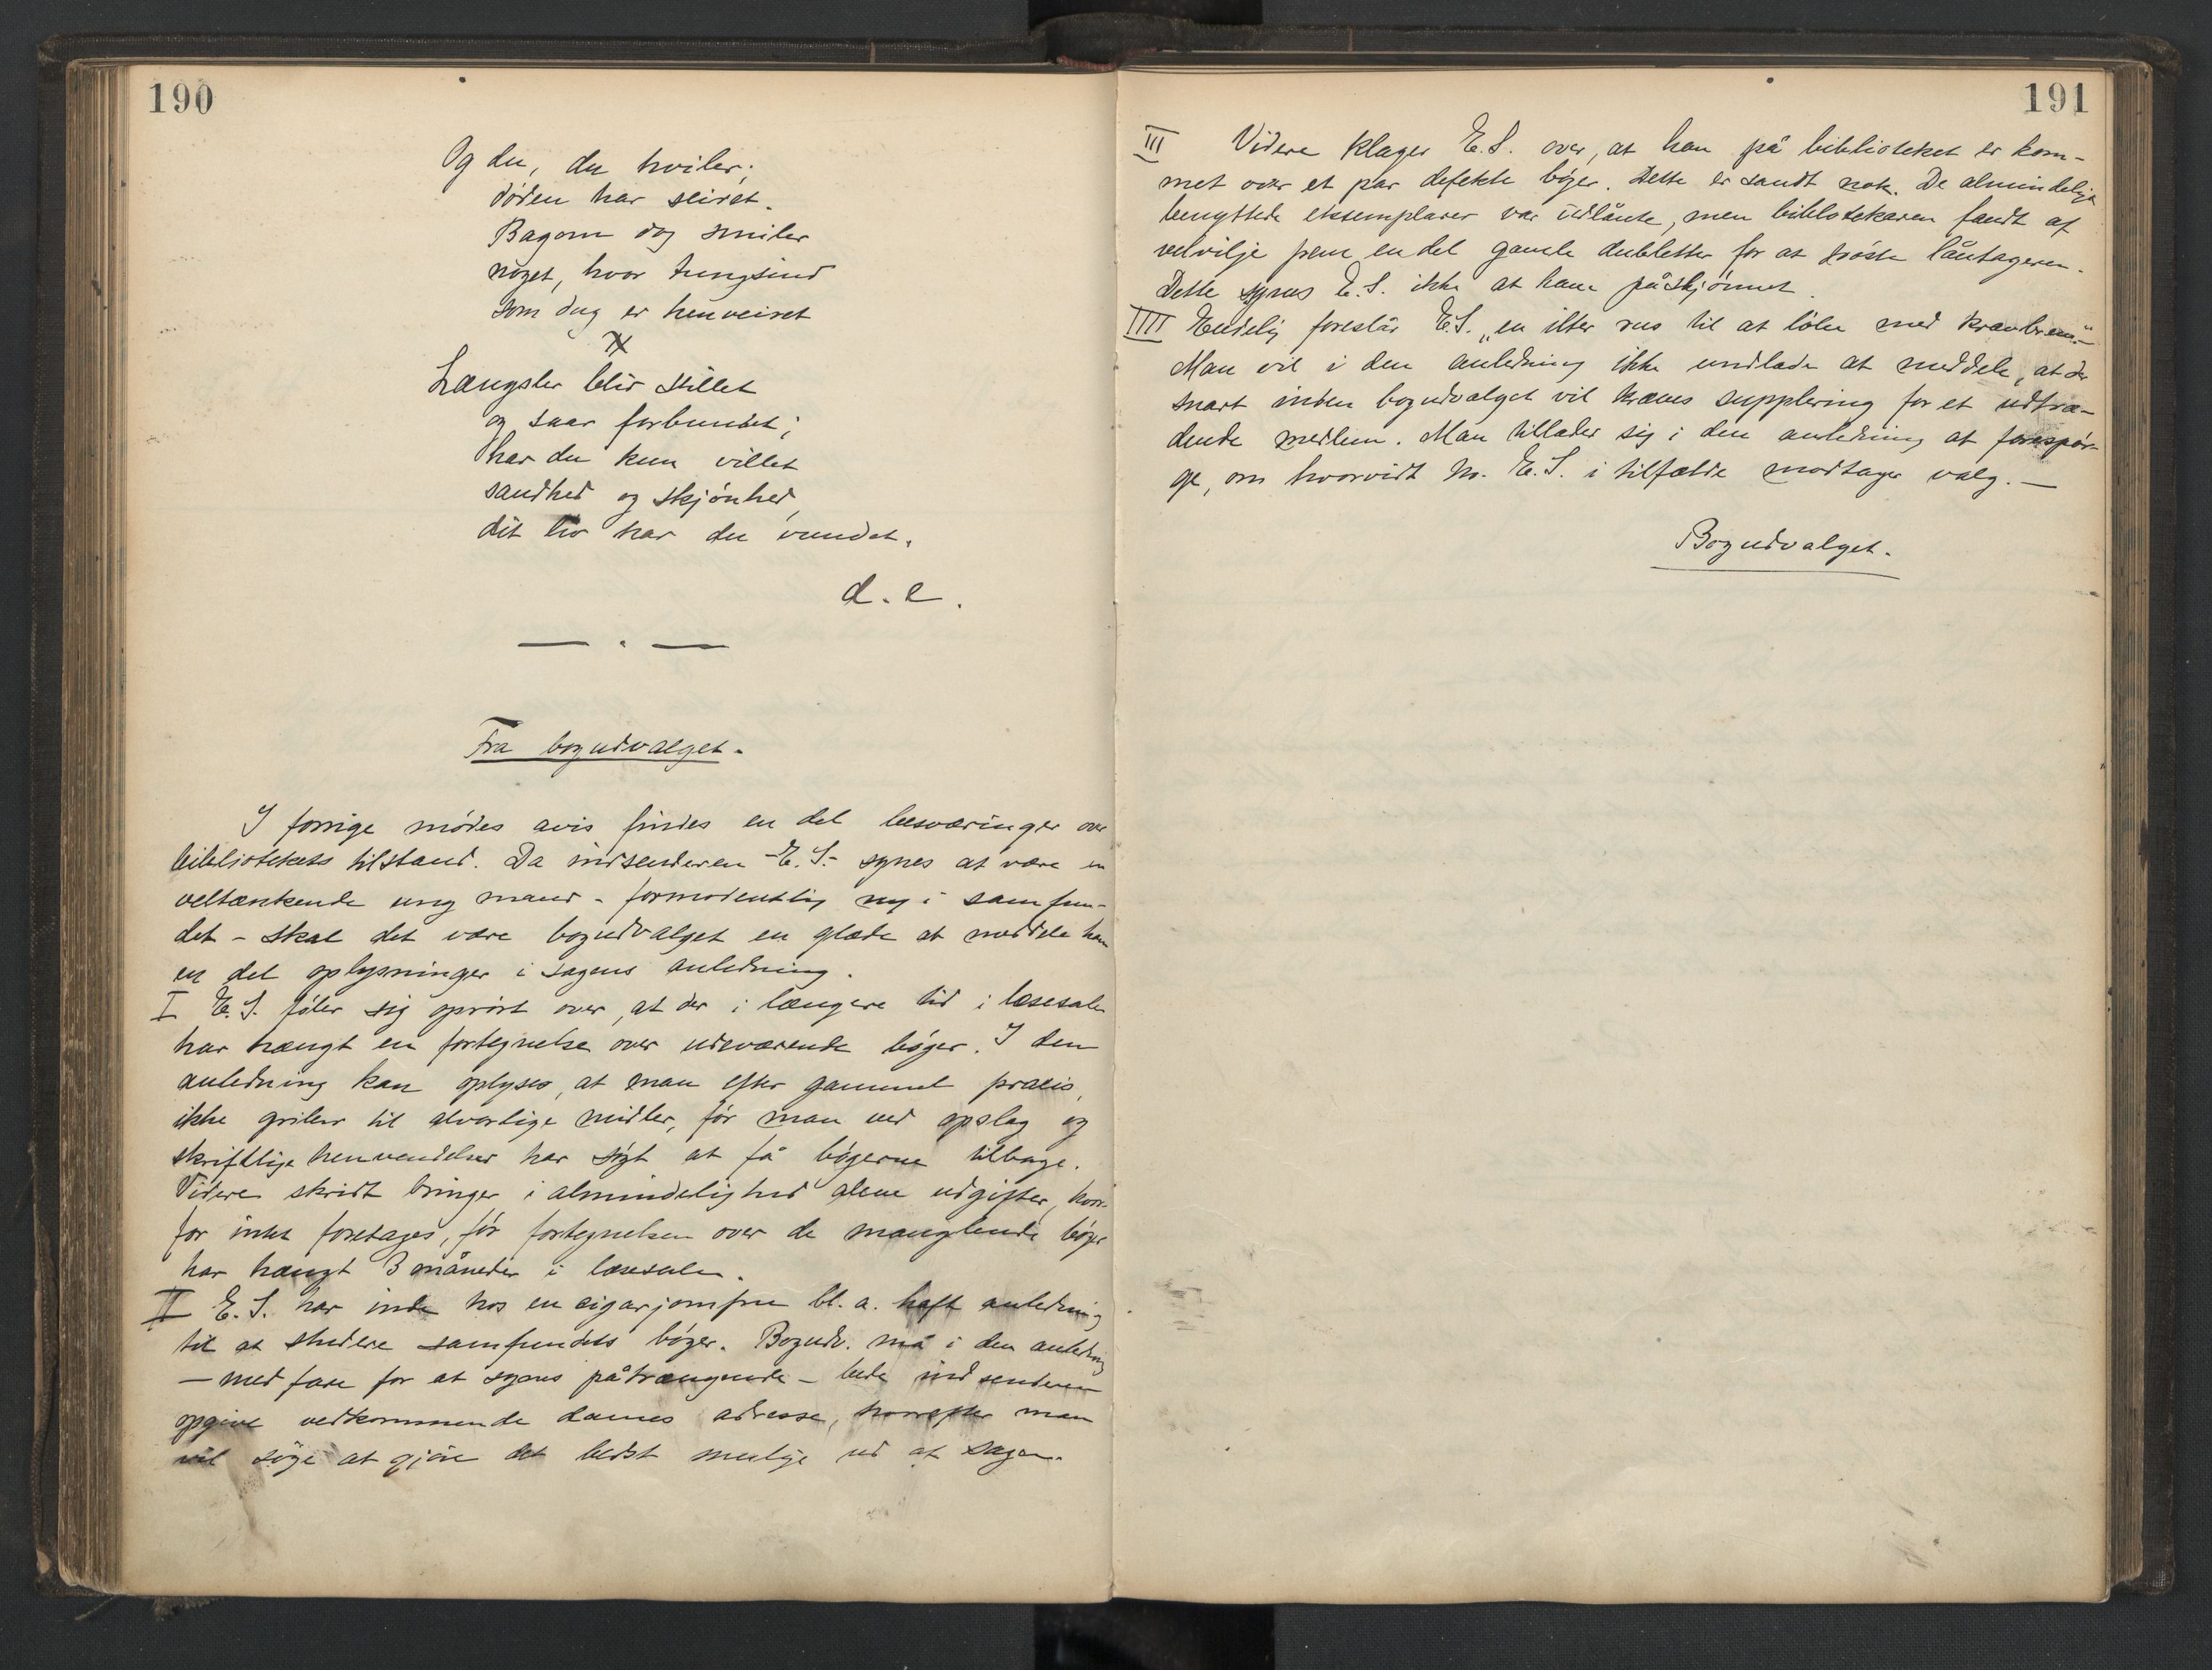 190
Og du, du hviler;
døden har seiret.
Bagom dog smiler
noget, hvor tungsind
som dug er henveiret
Længsler blir stillet
og saar forbundet;
har du kun villet
sandhed og skjønhed,
dit liv har du vundet.
d. e.
— . —
Fra bogudvalget.
I forrige mødes avis findes en del besværinger over
bibliotekets tilstand. Da indsenderen - E. S. - synes at være en
veltænkende ung mand - formodentlig ny i samfun-
det - skal det være bogudvalget en glæde at meddele ham
en del oplysninger i sagens anledning.
I E. S. føler sig oprørt over, at der i længere tid i læsesalen
har hængt en fortegnelse over udeværende bøger. I den
anledning kan oplyses, at man efter gammel praxis,
ikke griber til alvorlige midler, før man ved opslag og
skriftlige henvendelser har søgt at få bøgerne tilbage.
Videre skridt bringer i almindelighed alene udgifter, hvor-
for intet foretages, før fortegnelsen over de manglende bøger
har hængt 3 måneder i læsesalen.
II E. S. har inde hos en cigarjomfru bl. a. haft anledning
til at studere samfundets bøger. Bogudv. må i den anledning
— med fare for at synes påtrængende — bede indsenderen
opgive vedkommende dames adresse, hvorefter man
vil søge at gjøre det bedst mulige ud af sagen.
191
III Videre klager E. S. over, at han på biblioteket er kom-
met over et par defekte bøger. Dette er sandt nok. De almindelige
benyttede eksemplarer var udlånte, men bibliotekaren fandt af
velvilje frem en del gamle dubletter for at trøste låntageren.
Dette synes E. S. ikke at have påskjønnet.
IIII Endelig foreslår E. S. „en ilter rus til at løbe med
Man vil i den anledning ikke undlade at meddele, at der
snart inden bogudvalget vil kræves supplering for et udtræ-
dende medlem. Man tillader sig i den anledning at forespør-
ge, om hvorvidt hr. E. S. i tilfælde modtager valg. —
Bogudvalget.